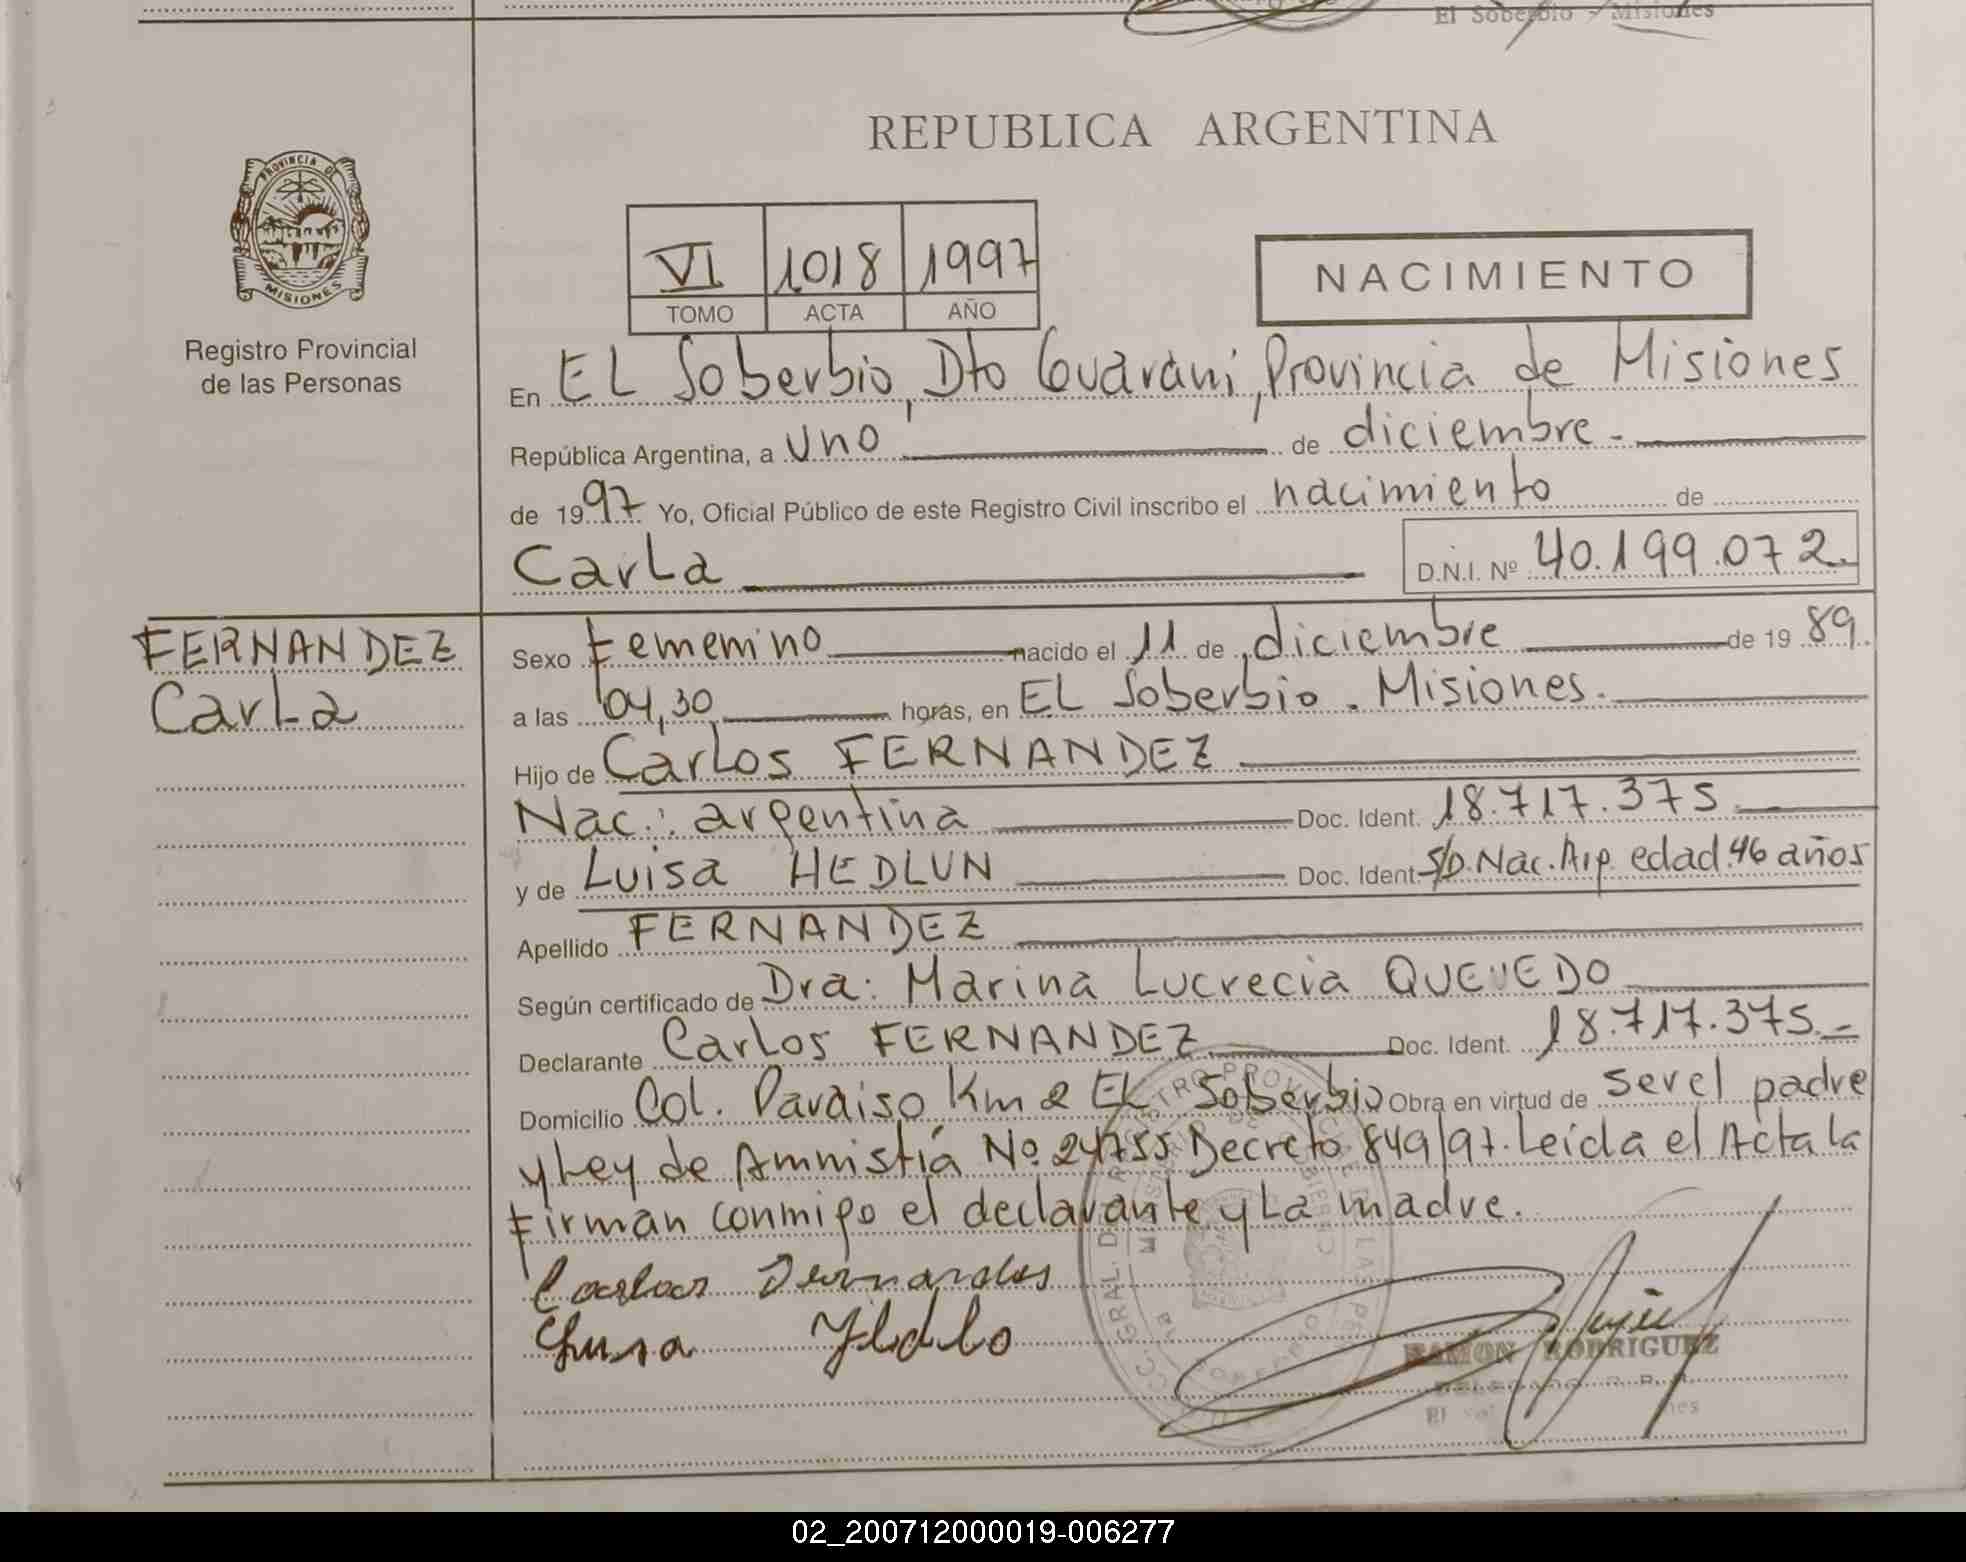 El Soberbio - Misiones
REPUBLICA ARGENTINA
PROVINCIA DE
MISIONES
Registro Provincial
de las Personas
VI 1018 1997
TOMO ACTA AÑO
NACIMIENTO
En EL Soberbio, Dto Guaraní, Provincia de Misiones
República Argentina, a uno de diciembre.-
de 1997 Yo, Oficial Público de este Registro Civil inscribo el nacimiento de
CarLa D.N.I. Nº 40.199.072.
FERNANDEZ
CarLa
Sexo Femenino nacido el 11 de diciembre de 1989
a las 04,30 horas, en EL Soberbio. Misiones.
Hijo de CarLos FERNANDEZ
Nac.: argentina Doc. Ident. 18.717.375
y de Luisa HEDLUN Doc. Ident. S/D. Nac. Arg. edad 46 años
Apellido FERNANDEZ
Según certificado de Dra: Marina Lucrecia QUEVEDO
Declarante CarLos FERNANDEZ Doc. Ident. 18.717.375.-
Domicilio Col. Paraiso Km 2 EL Soberbio Obra en virtud de ser el padre
y Ley de Amnistiá Nº 24755 Decreto 849/97. Leída el Acta la
firman conmigo el declarante y La madre.
Carlos Fernandes
RAMON RODRIGUEZ
DELEGADO R.P.P.
02_200712000019-006277